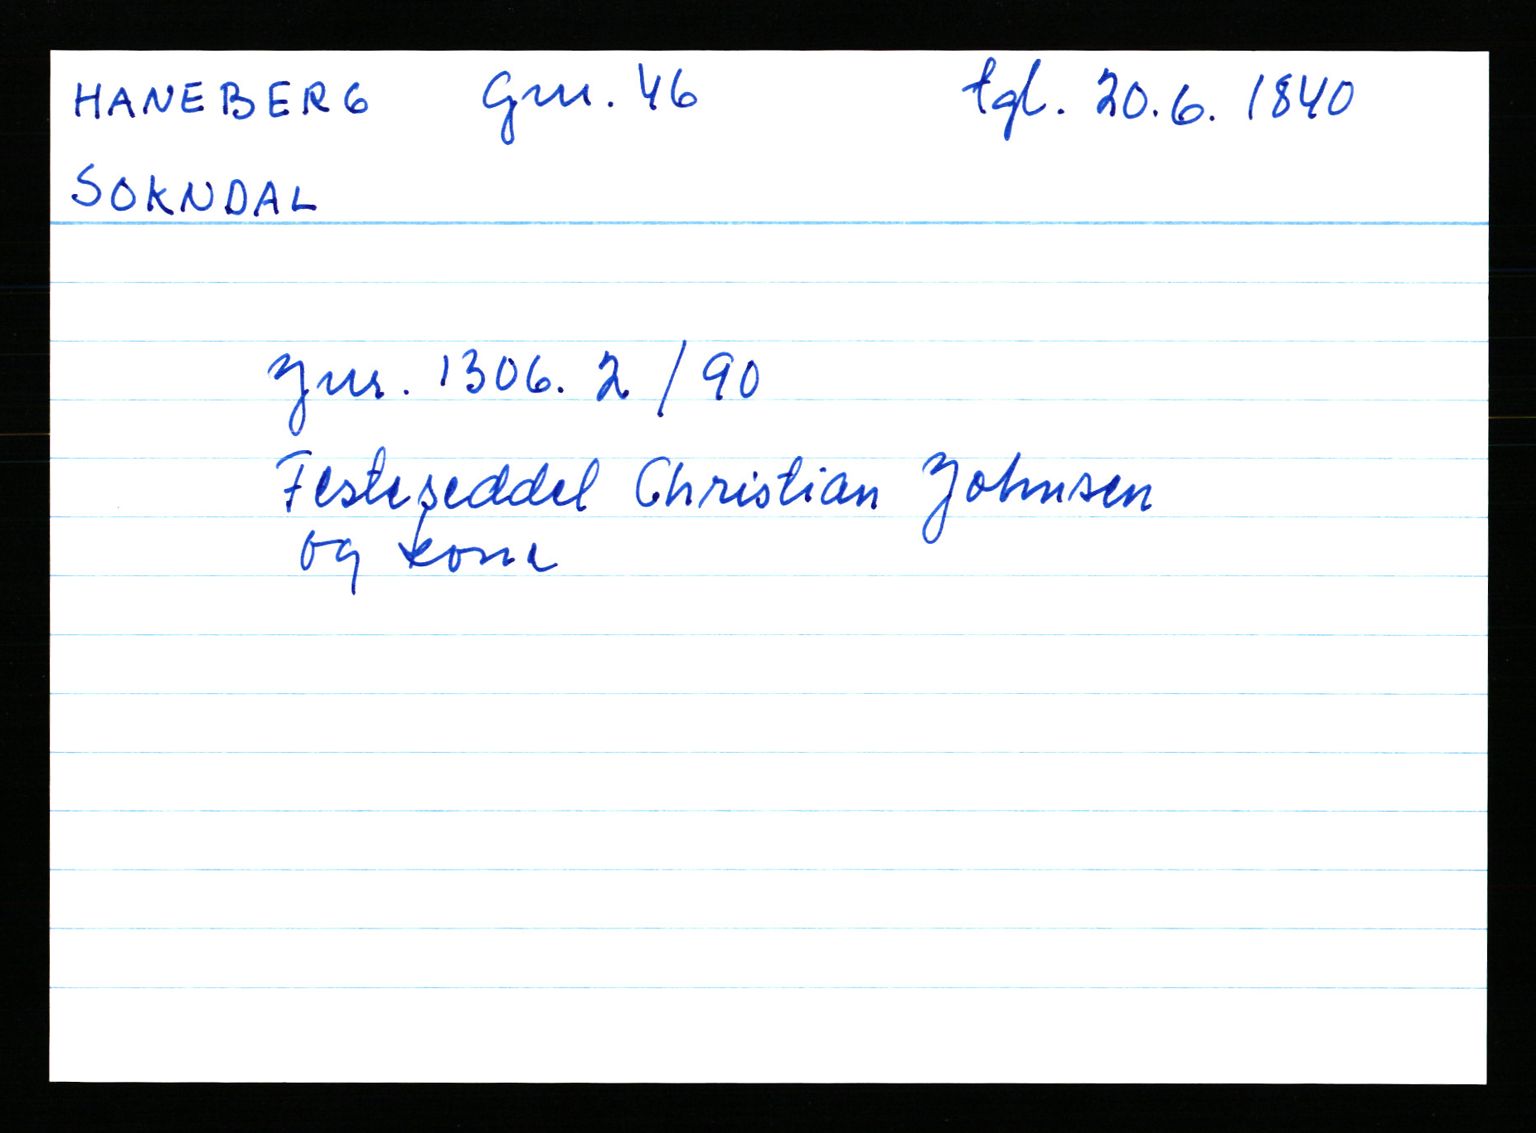 HANEBERG Gnr. 46 tgl. 20.6. 1840
SOKNDAL
Jnr. 1306. 2/90
Festeseddel Christian Johnsen
og kone